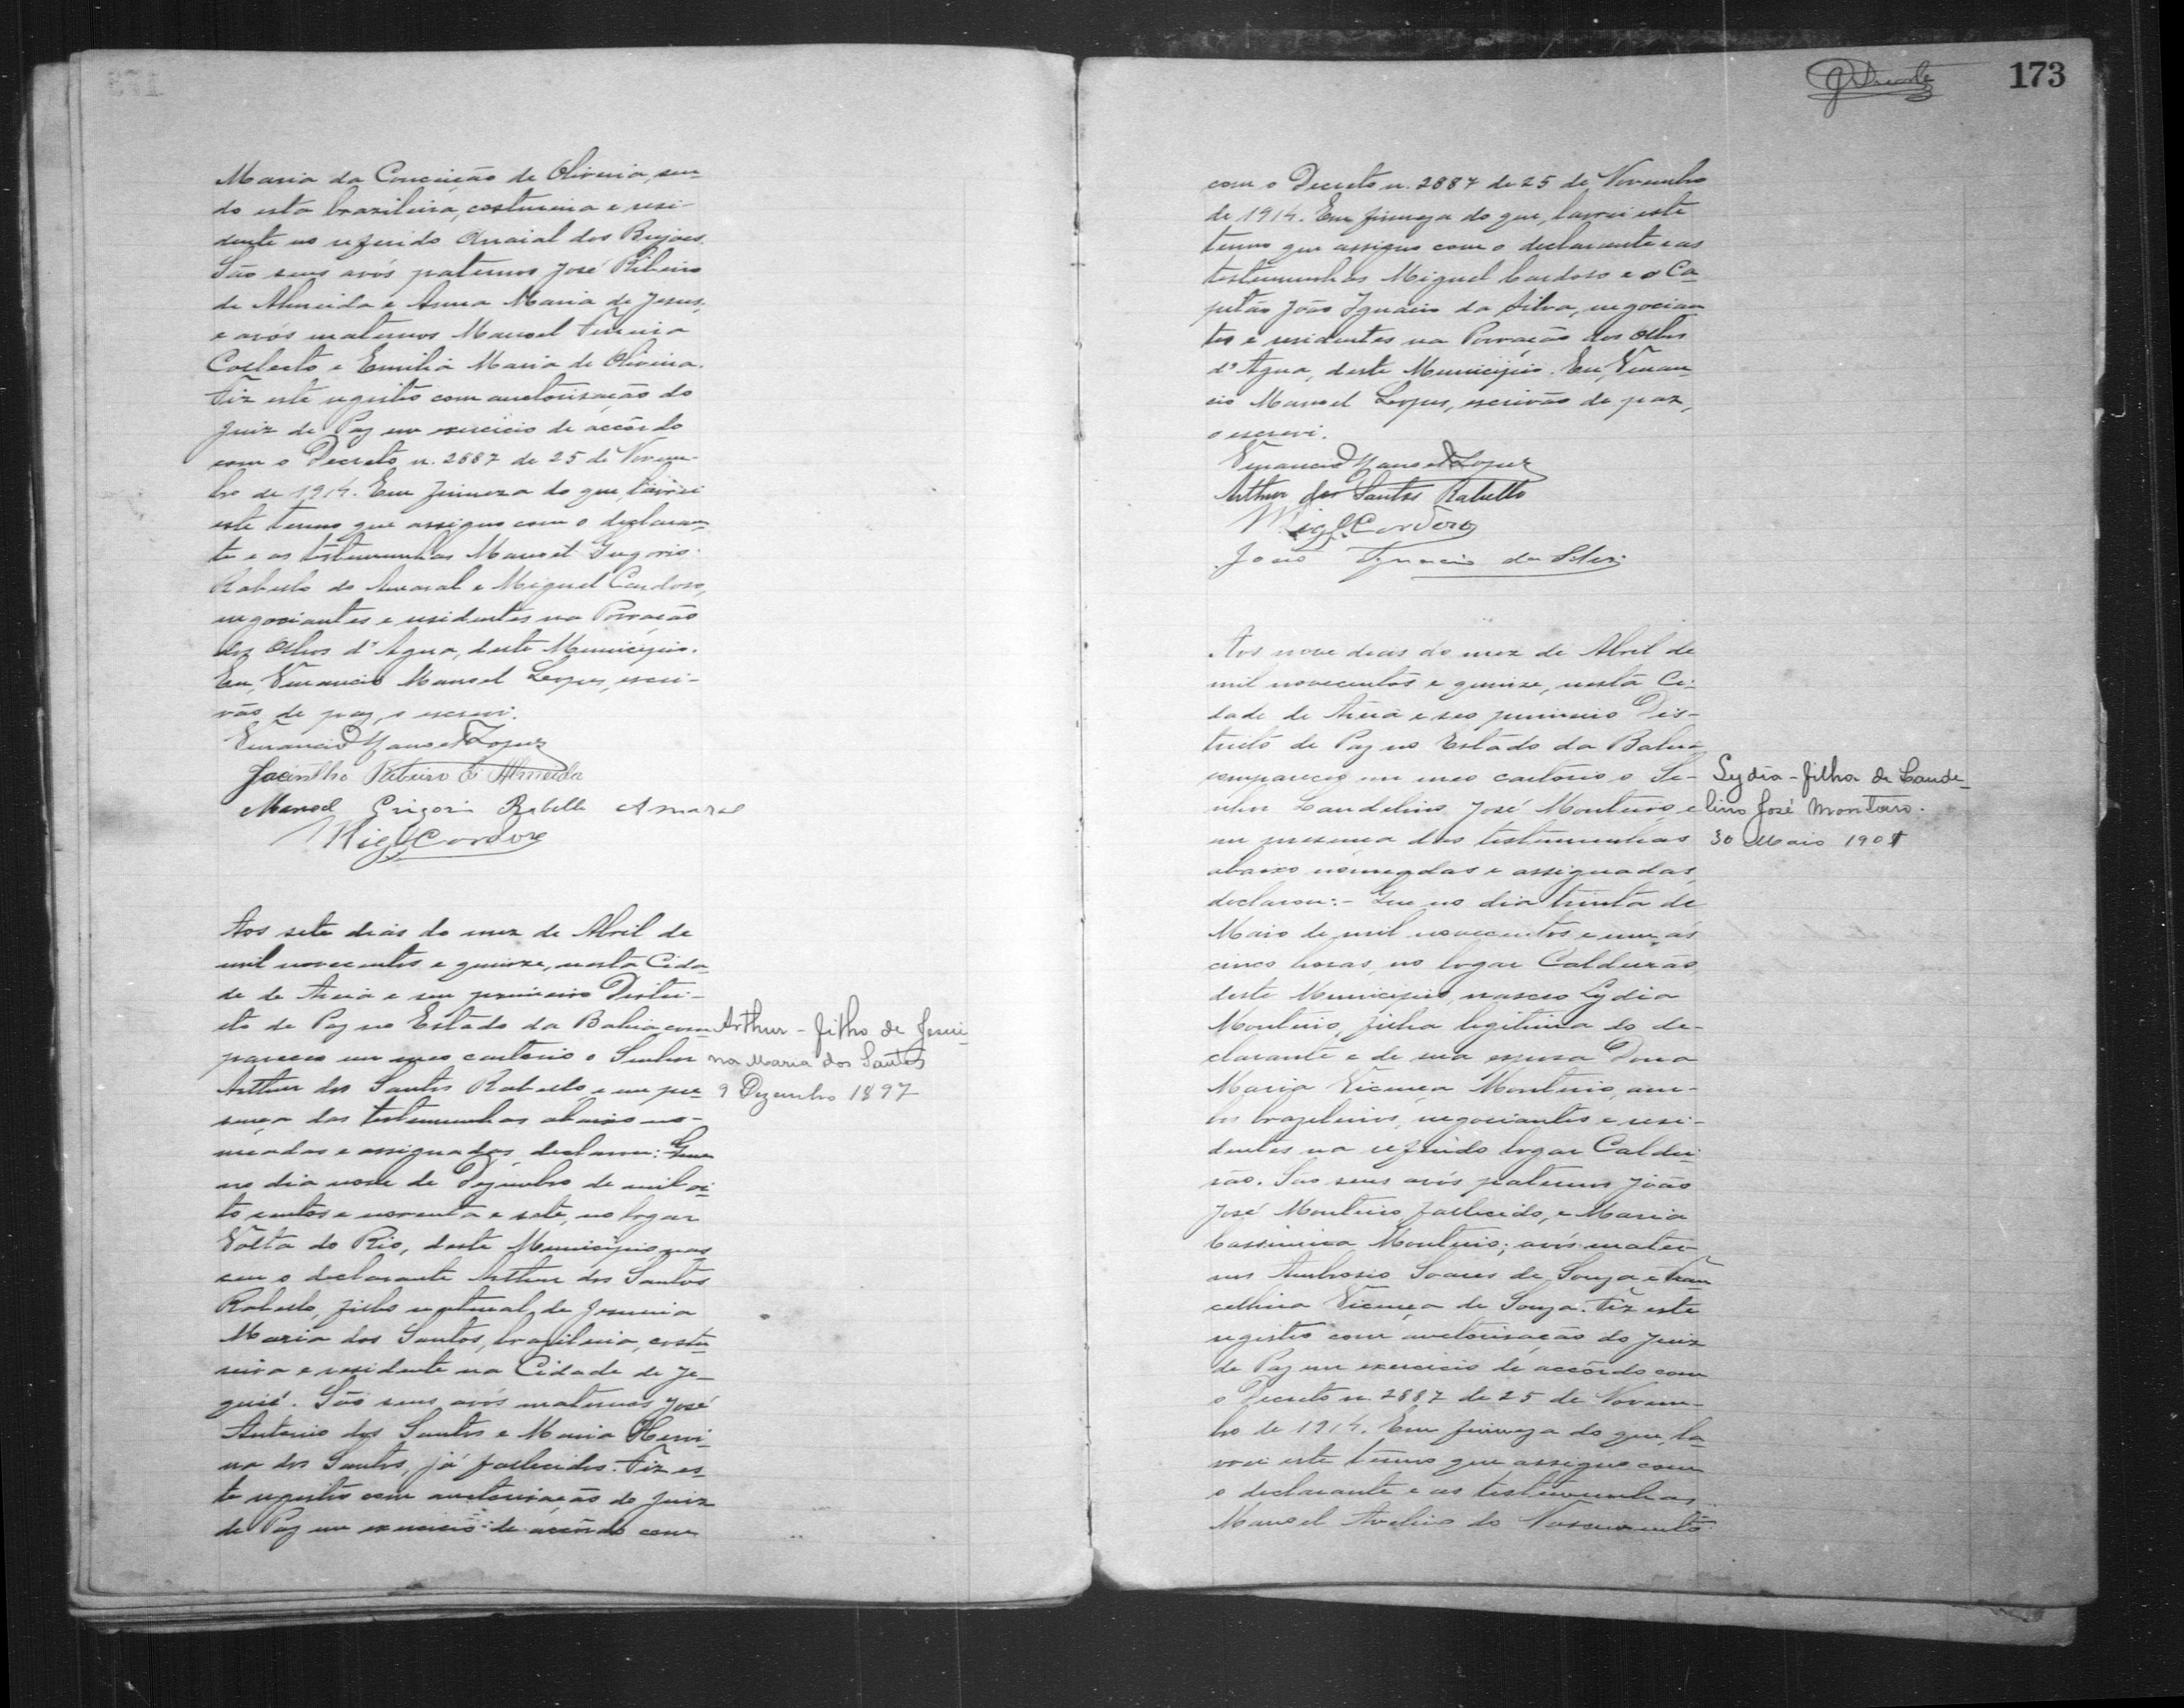 Maria da Conceição de Oliveira, sen-
do esta brazileira, costureira e resi-
dente no referido Arraial dos Brejões.
São seus avós paternos José Ribeiro
de Almeida e Anna Maria de Jesus,
e avós maternos Manoel Ferreira
e Emilia Maria de Oliveira.
Fiz este registro com auctorisação do
Juiz de Paz em exercicio de accôrdo
com o Decreto n. 2887 de 25 de Novem-
bro de 1914. Em firmeza do que, lavrei
este termo que assigno com o declaran-
te e as testemunhas Manoel Gregorio
Rabello do Amaral e Miguel Cardoso,
negociantes e residentes na Povoação
dos Olhos d'Agua, deste Municipio.
Eu, Venancio Manoel Lopes, escri-
vão de paz, o escrevi.
Venancio Manoel Lopes
Jacintho Ribeiro de Almeida
Manoel Grigorio Rabello Amaral
Migel Cardozo
Aos sete dias do mez de Abril de
mil novecentos e quinze, nesta Cida-
de de Areia e seu primeiro Distri-
cto de Paz no Estado da Bahia com-
pareceu em meo cartorio o Senhor
Arthur dos Santos Rabello, e em pre-
sença das testemunhas abaixo no-
meadas e assignadas, declarou: Que
no dia nove de Dezembro de mil oi-
to centos e noventa e sete, no logar
Volta do Rio, deste Municipio, nas-
ceu o declarante Arthur dos Santos
Rabello, filho natural de Jesuina
Maria dos Santos, brazileira, costu-
reira e residente na Cidade de Je-
quié. São seus avós maternos José
Antonio dos Santos e Maria
na dos Santos, já fallecidos. Fiz es-
te registro com auctorisação do Juiz
de Paz em exercicio de accôrdo com
Arthur - filho de Jesui-
na Maria dos Santos
9 Dezembro 1897
173
com o Decreto n. 2887 de 25 de Novembro
de 1914. Em firmeza do que, lavrei este
termo que assigno com o declarante e as
testemunhas Miguel Cardoso e o Ca-
pitão João Ignacio da Silva, negocian-
tes e residentes na Povoação dos Olhos
d'Agua, deste Municipio. Eu, Venan-
cio Manoel Lopes, escrivão de paz,
o escrevi.
Venancio Manoel Lopes
Arthur dos Santos Rabello
Migel Cardozo
João Ignacio da Silva
Aos nove dias do mez de Abril de
mil novecentos e quinze, nesta Ci-
dade de Areia e seo primeiro Dis-
tricto de Paz no Estado da Bahia
compareceo em meo cartorio o Se-
nhor Laudelino José Monteiro, e
em presença das testemunhas
abaixo nomeadas e assignadas,
declarou: - Que no dia trinta de
Maio de mil novecentos e um, ás
cinco horas, no logar Caldeirão,
deste Municipio, nasceo Lydia
Monteiro, filha legitima do de-
clarante e de sua esposa Dona
Maria Vicencia Monteiro, am-
bos brazileiros, negociantes e resi-
dentes no referido logar Caldei-
rão. São seus avós paternos João
José Monteiro, fallecido, e Maria
Cassimira Monteiro; avós mater-
nos Ambrosio Soares de Souza e Fran-
cellina Vicencia de Souza. Fiz este
registro com auctorisação do Juiz
de Paz em exercicio de accôrdo com
o Decreto n. 2887 de 25 de Novem-
bro de 1914. Em firmeza do que, la-
vrei este termo que assigno com
o declarante e as testemunhas
Manoel Avelino do Nascimento
Lydia - filha de Laude-
lino José Monteiro.
30 Maio 1901